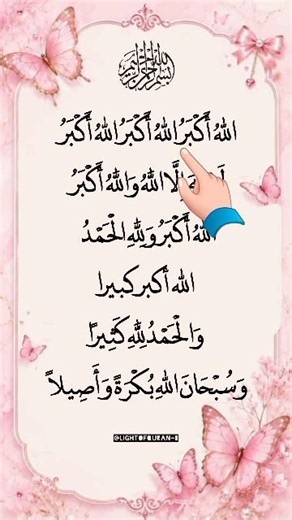 بسم الله الرحمن الرحيم
اللهُ أَكْبَرُ اللهُ أَكْبَرُ اللهُ أَكْبَرُ
إِلَّا اللهُ وَاللهُ أَكْبَرُ
اللهُ أَكْبَرُ وَلِلّٰهِ الْحَمْدُ
الله أكبر كبيرا
وَالْحَمْدُ لِلّٰهِ كَثِيرًا
وَسُبْحَانَ اللهِ بُكْرَةً وَأَصِيلاً